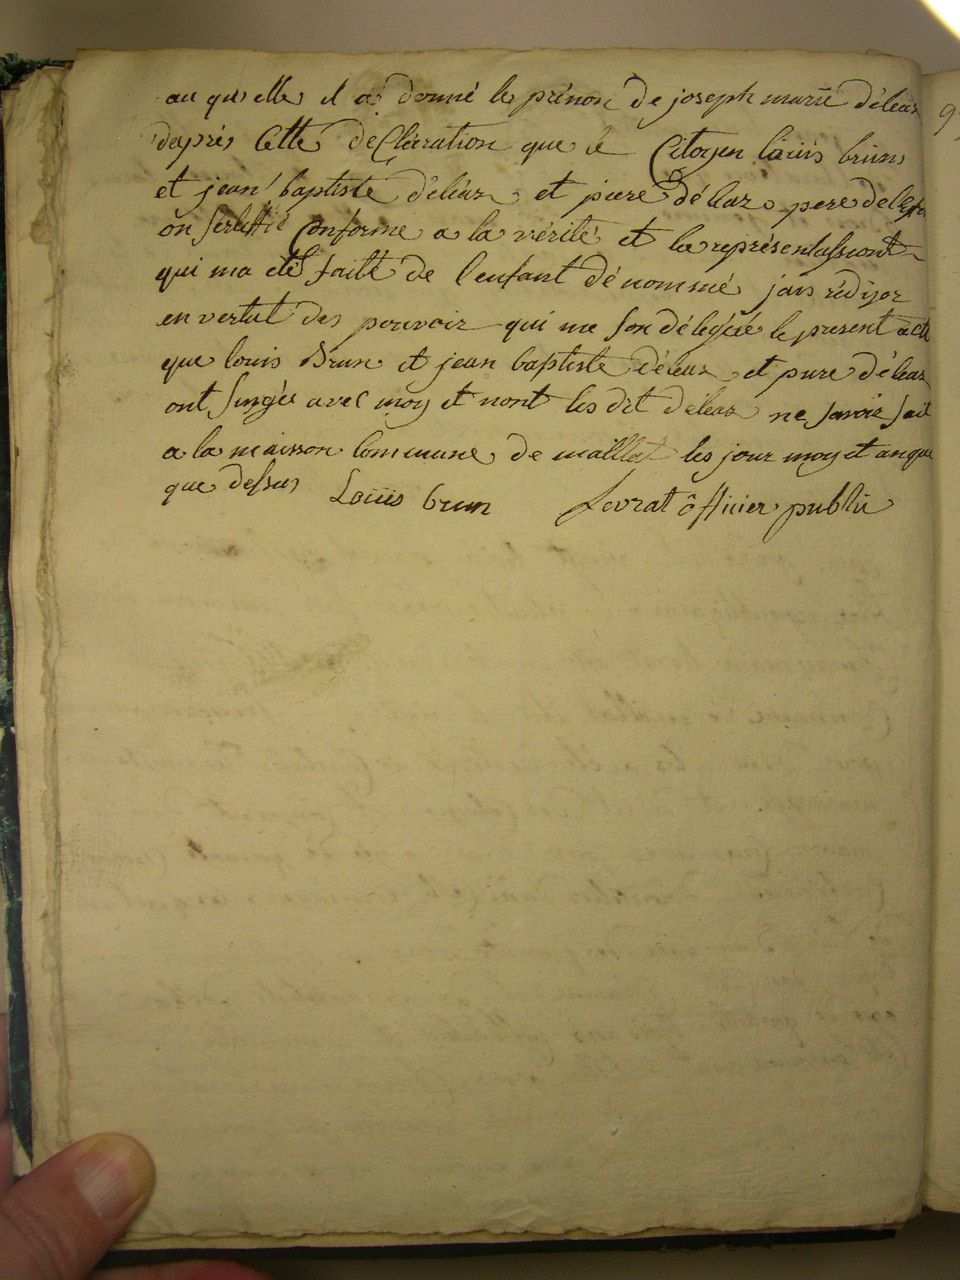 au quelle il a donné le prénon de joseph marie déléaz
dapres Cette déClaration que le Citoyen Loüis brun
et jean baptiste déléaz et piere déléaz pere delefan
on Sertiffié Conforme a la vérité et la représentassiont
qui ma été faitte de l'enfant dénommé jais rédiger
en vertut des pouvoir qui me son délégéé le present acte
que louis Brun et jean baptiste déléaz et piere déléaz
ont Singée avec moy et nont les dit déléaz ne Savoir fait
a la maisson Commune de maillat les jour moy et an que
que dessus Loüis brun Levrat ôfficier public
9